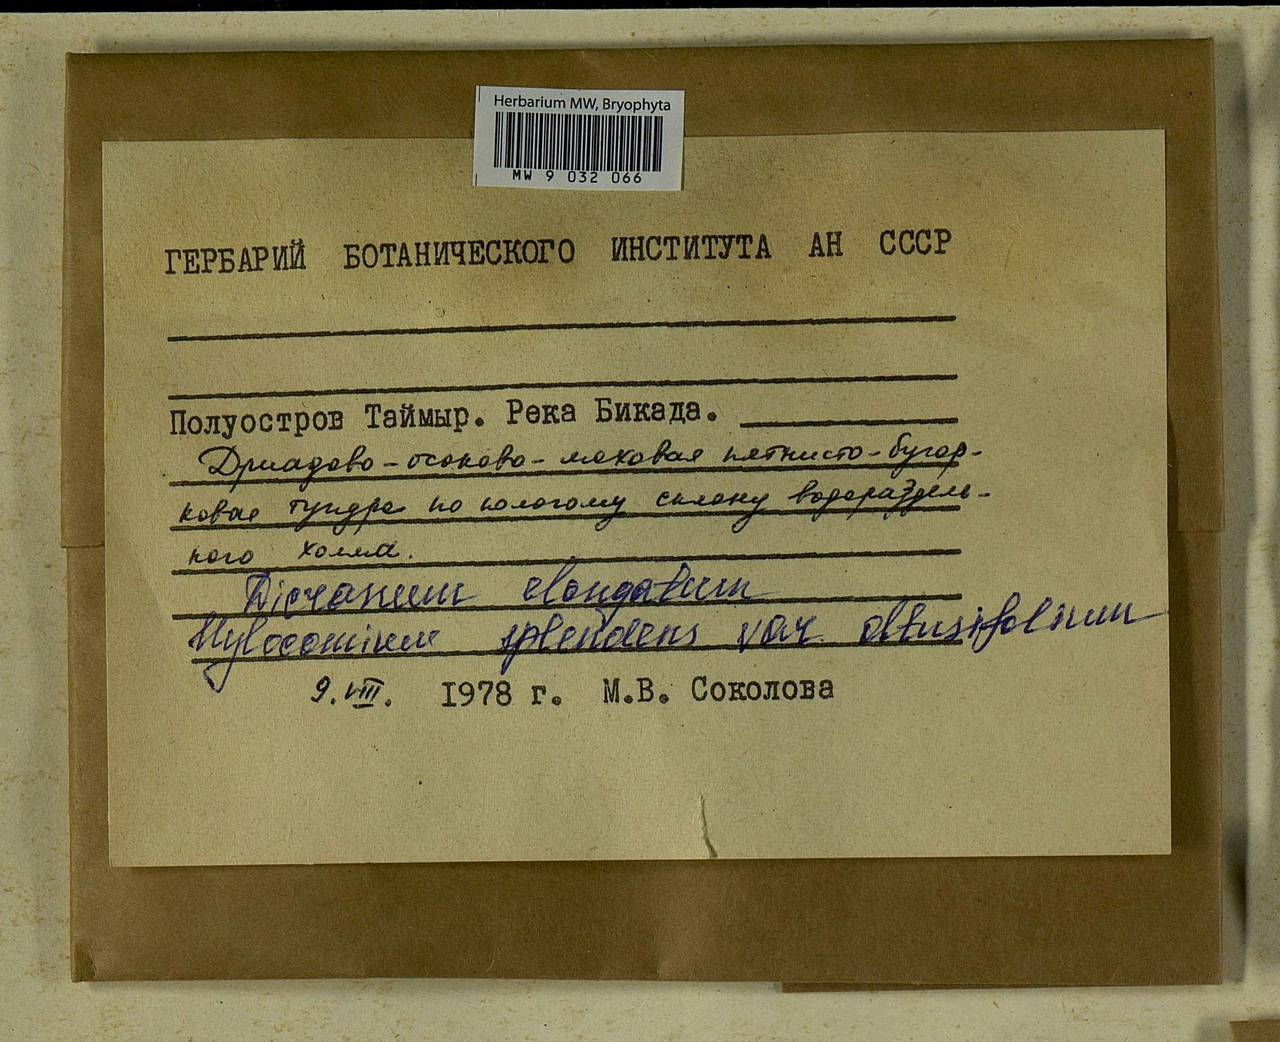 Herbarium MW, Bryophyta
MW 9 032 066
ГЕРБАРИЙ БОТАНИЧЕСКОГО ИНСТИТУТА АН СССР
Полуостров Таймыр. Река Бикада.
Дриадово-осоково-моховая пятнисто-бугор-
ковая тундра по пологому склону водораздель-
ного холма.
Dicranum elongatum
Hylocomium splendens var. obtusifolium
9.VIII. 1978 г. М.В. Соколова